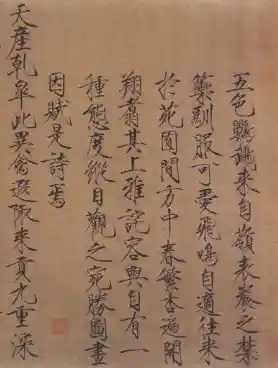 五色鸚鵡來自嶺表養之禁
籞馴服可愛飛鳴自適往來
於苑囿間方中春繁杏遍開
翔翥其上雅詫容與自有一
種態度縱目觀之宛勝圖畫
因賦是詩焉
天產乾皋此異禽遐陬來貢九重深